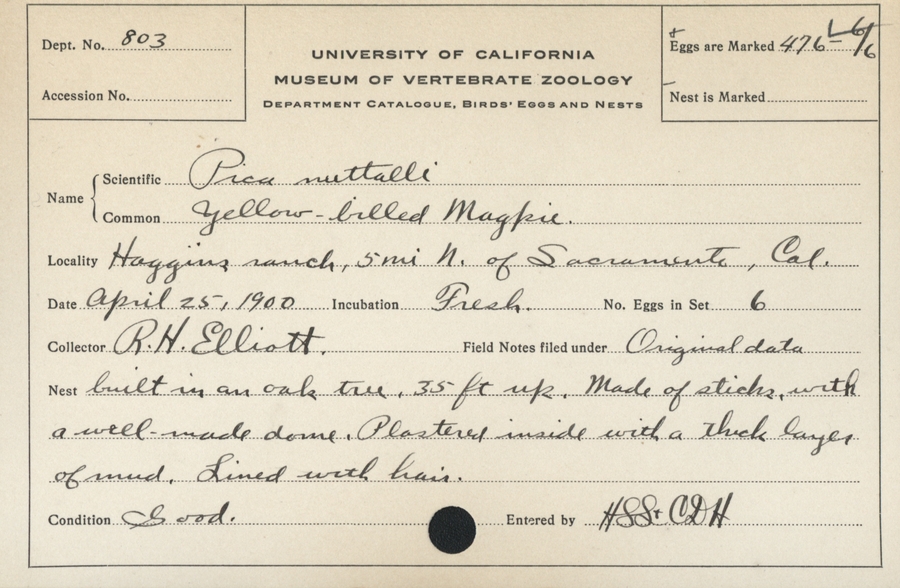 Dept. No. 803
Accession No.
UNIVERSITY OF CALIFORNIA
MUSEUM OF VERTEBRATE ZOOLOGY
DEPARTMENT CATALOGUE, BIRDS' EGGS AND NESTS
+
Eggs are Marked 476 - 6/6
Nest is Marked
Name
Scientific Pica nuttalli
Common Yellow-billed Magpie.
Locality Haggins ranch, 5 mi N. of Sacramento, Cal.
Date April 25, 1900 Incubation Fresh. No. Eggs in Set 6
Collector R.H. Elliott. Field Notes filed under Original data
Nest built in an oak tree, 35 ft up. Made of sticks, with
a well-made dome. Plastered inside with a thick layer
of mud. Lined with hair.
Condition Good. Entered by HSS+CDH